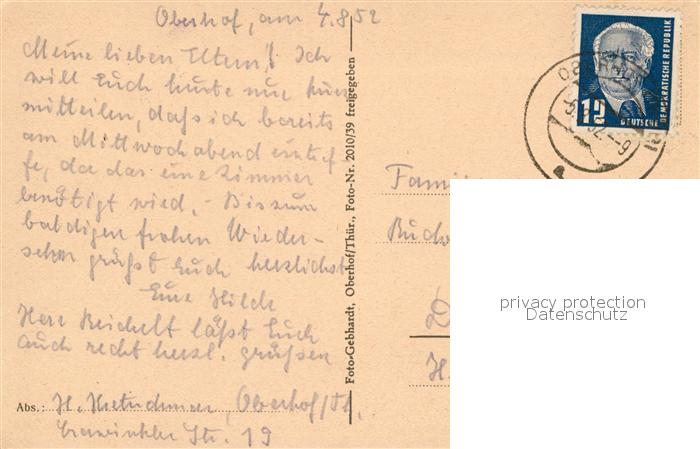 Oberhof, am 4.8.52
Meine lieben Eltern! Ich
will Euch heute nur kurz
mitteilen, daß ich bereits
am Mittwoch abend eintref-
fe, da das eine Zimmer
benötigt wird. - Bis zum
baldigen frohen Wieder-
sehen grüßt Euch herzlichst
Eure Hilde
Herr Reichelt läßt Euch
auch recht herzl. grüßen
Abs.: H. Oberhof/Th.
Crawinkler Str. 19
Foto-Gebhardt, Oberhof/Thür., Foto-Nr. 2010/39 freigegeben
12
DEUTSCHE
DEMOKRATISCHE REPUBLIK
privacy protection
Datenschutz